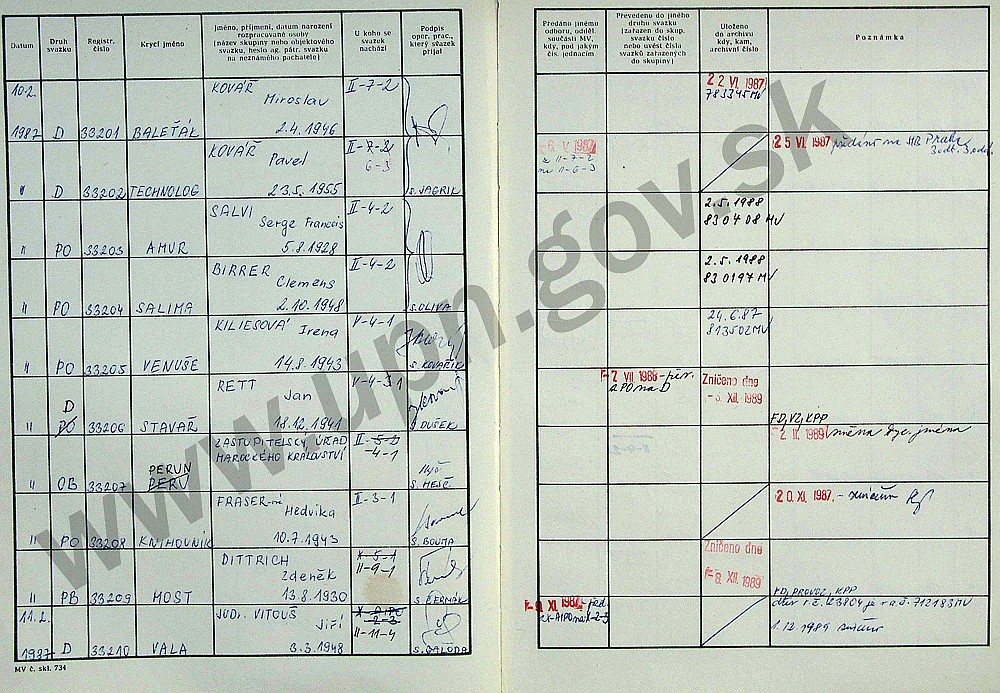 Datum
Druh svazku
Registr. číslo
Krycí jméno
Jméno, příjmení, datum narození
rozpracované osoby
(název skupiny nebo objektového
svazku, heslo ag. pátr. svazku
na neznámého pachatele)
U koho se
svazek
nachází
Podpis
oper. prac.,
který svazek
přijal
Předáno jinému
odboru, odděl.
součásti MV,
kdy, pod jakým
čís. jednacím
Převedeno do jiného
druhu svazku
(zařazen do skup.
svazku číslo
nebo uvést čísla
svazků zařazených
do skupiny)
Uloženo
do archivu
kdy, kam,
archivní číslo
Poznámka
10.2. KOVÁŘ II-7-2 22 VI. 1987
Miroslav 783345 MV
1987 D 33201 BALEŤÁK 2.4.1946
KOVÁŘ II-7-2 V 1987 25 VI. 1987
Pavel 6-3 z II-7-2
na II-6-3
" D 33202 TECHNOLOG 23.5.1955 S. JAGRIK
SALVI II-4-2 2.5.1988
Serge Francois 830408 MV
" PO 33203 AMUR 5.8.1928
BIRRER II-4-2 2.5.1988
Clemens 830197 MV
" PO 33204 SALIMA 2.10.1948 S. OLIVA
KILIESOVÁ Irena V-4-1 24.6.87
813502 MV
" PO 33205 VENUŠE 14.8.1943 S. KOVAŘÍK
RETT V-4-31 VII 1988 - přev. Zničeno dne
Jan z PO na D XII. 1989
D
" PO 33206 STAVAŘ 18.12.1941 DUŠEK FD, VZ, KPP
ZASTUPITELSKÝ ÚŘAD II-5-2 1989 změna kryc. jména
MAROCKÉHO KRÁLOVSTVÍ -4-1
PERUN
" OB 33207 PERU S. HESČ
FRASER-ná II-3-1 20. XI. 1987.
Hedvika
" PO 33208 KNIHOVNÍK 10.7.1943 S. BOUMA
DITTRICH X-5-1 Zničeno dne
Zdeněk II-9-1 8. XII. 1989
" PB 33209 MOST 13.8.1930 S. ČERMÁK FD, PROVOZ, KPP
11.2. JUDr. VITOUŠ XI. 1987 před.
Jiří -2-3
II-11-4 1.12.1989
1987 D 33210 VALA 3.3.1948 S. GALODA
MV č. skl. 734
www.upn.gov.sk